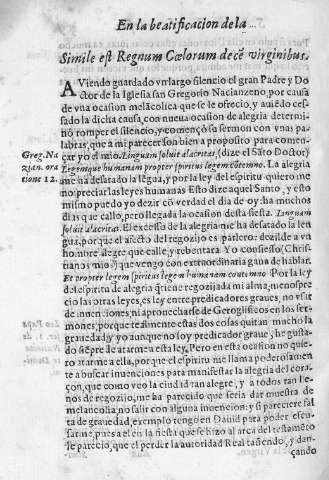 En la beatificacion de la
Simile est Regnum Cœlorum decē virginibus.
AViendo guardado vn largo silencio el gran Padre y Do
ctor de la Iglesia san Gregorio Nacianzeno, por causa
de vna ocasion melācolica que se le ofrecio, y auiēdo ces-
sado la dicha causa, con nueua ocasion de alegria determi
nò romper el silencio, y començò su sermon con vnas pa-
labras, que a mi parecer son bien a proposito para comen-
Greg. Na
çar yo el mio. Linguam soluit alacritas, (dize el Sāto Doctor)
zjan. ora
Legemque humanam propter spiritus legem cōtemno. La alegria
tione 12.
me ha desatado la lēgua, y por la ley del spiritu quiero me
no preciar las leyes humanas Esto dize aquel Santo, y esto
mismo puedo yo dezir cō verdad el dia de oy: ha muchos
dias que callo, pero llegada la ocasion desta fiesta. Linguam
soluit alacritas. El excesso de la alegria me ha desatado la len
gua, porque si al afecto del regozijo es
hombre alegre que calle y rebentara. Yo confiesso (Chris-
tianos mios) que vengo con extraordinaria gana de hablar.
Et propter legem spiritus legem humanam contemno Por la ley
del espiritu de alegria q̄ tiene regozijada mi alma, menospre
cio las otras leyes, es ley entre predicadores graues, no vsar
de inuenciones, ni aprouecharse de Geroglificos en los ser-
mones, porque estas dos cosas quitan mucho la
grauedad, y yo aunque no soy predicador graue, he gusta-
do siēpre de atarme a esta ley, Pero en esta ocasion no quie-
ro atarme a ella, porque el espiritu me llama poderosamen
te a buscar inuenciones para manifestar la alegria del cora-
çon, que como veo la ciudad tan alegre, y a todos tan lle-
nos de regozijo, me ha parecido que seria dar muestra de
melancolia no salir con alguna inuencion: y si pareciere fal
ta de grauedad, exemplo tengo en Dauid para poder escu-
sarme, pues a el en la fiesta que se hizo al arca del testamēto
le parecio, que el perder la autoridad Real tañendo, y dan-
çando